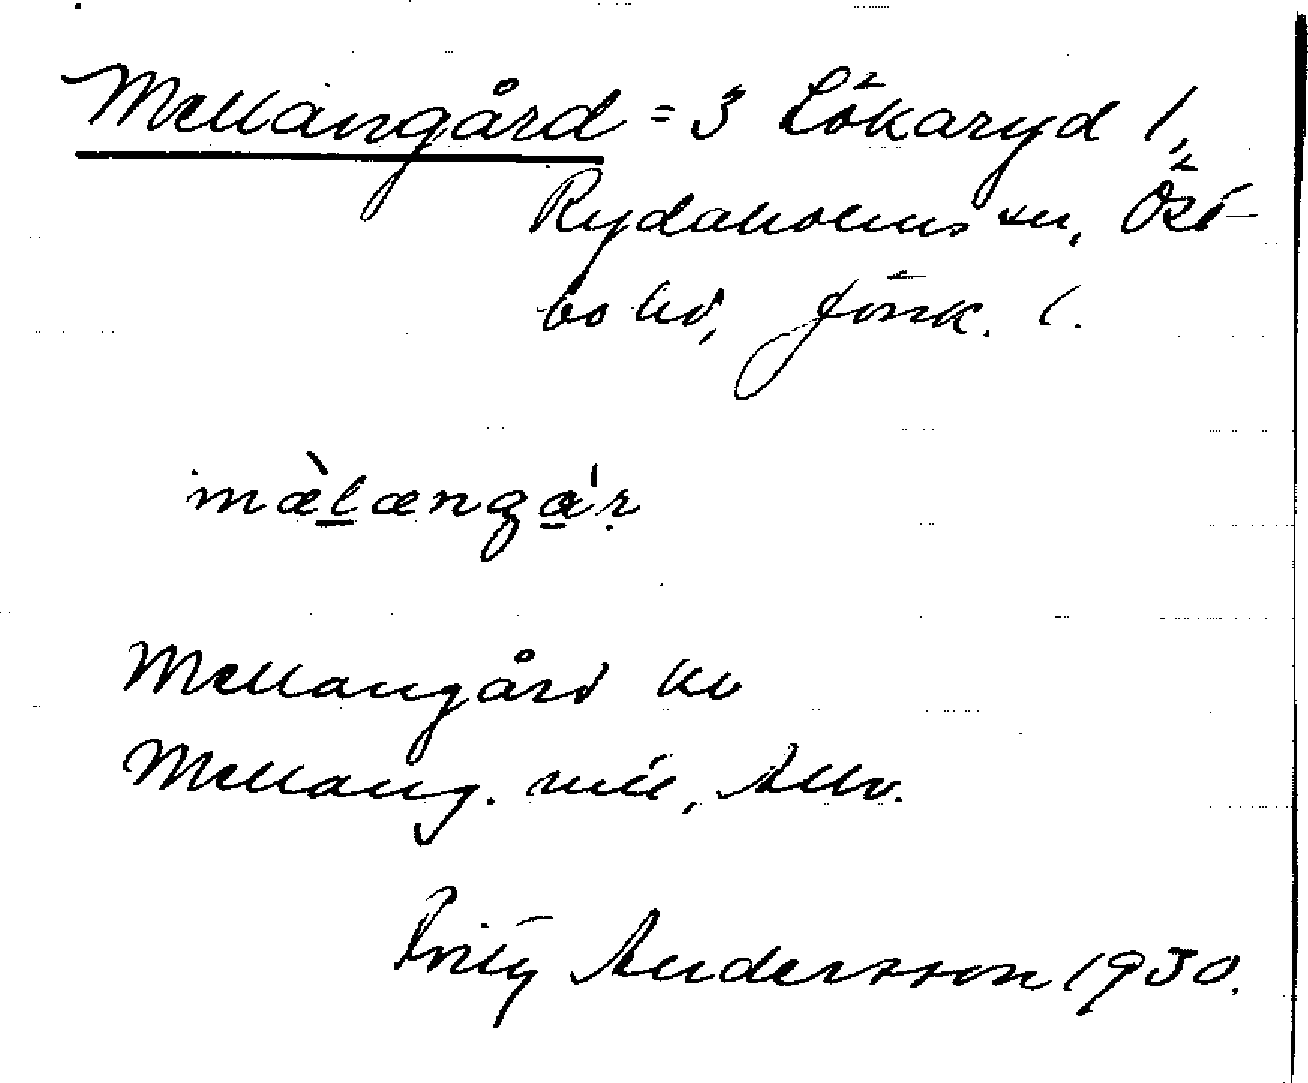 Mellangård = 3 Lökaryd 1,
Rydaholms sn, Öst-
bo hd, Jönk. l.
mæ̀l̲æŋga̲'r
Mellangård kb
Mellang.
Fritz Andersson 1930.